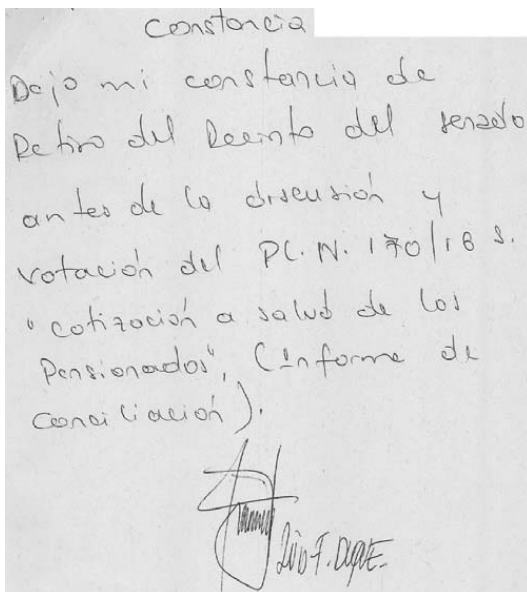 Constancia
Dejo mi constancia de
Retiro del Recinto del senado
antes de la discusión y
votación del PL. N. 170/16 S.
"cotización a salud de los
Pensionados", (Informe de
Conciliación).
F. DUQUE.